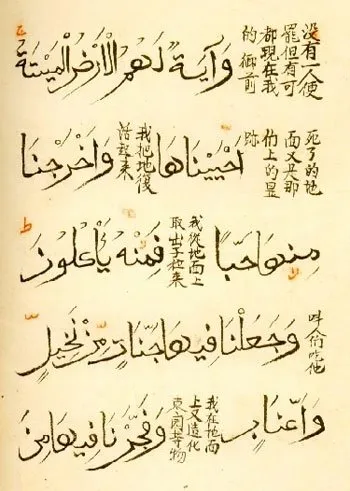 没有一人使
罷但有可
都現在我
的御前
وَآيَةٌ لَهُمُ الْأَرْضُ الْمَيْتَةُ
死了的地
面又是那
上的显
跡
أَحْيَيْنَاهَا
我把地復
活起来
وَأَخْرَجْنَا
مِنْهَا حَبًّا
我從地面上
取出子粒来
فَمِنْهُ يَأْكُلُونَ
吃他
وَجَعَلْنَا فِيهَا جَنَّاتٍ مِنْ نَخِيلٍ
وَأَعْنَابٍ
我在地面
上又造化
園等物
وَفَجَّرْنَا فِيهَا مِنَ